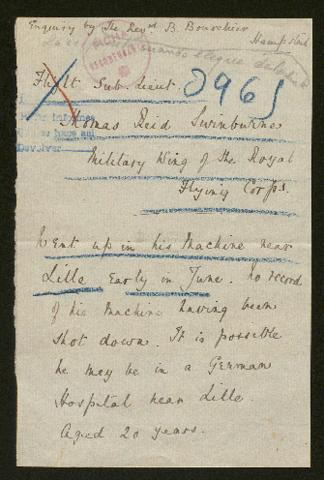 Enquiry by The Revd B. Bourchier
Hampstead
cuando llegue
Flight Sub Lieut.
3961
Thomas Reid Swinburne
informes
Devolver
Military Wing of the Royal
Flying Corps.
Went up in his Machine near
Lille early in June. no record
of his Machine having been
shot down. It is possible
he may be in a German
Hospital near Lille.
Aged 20 years.